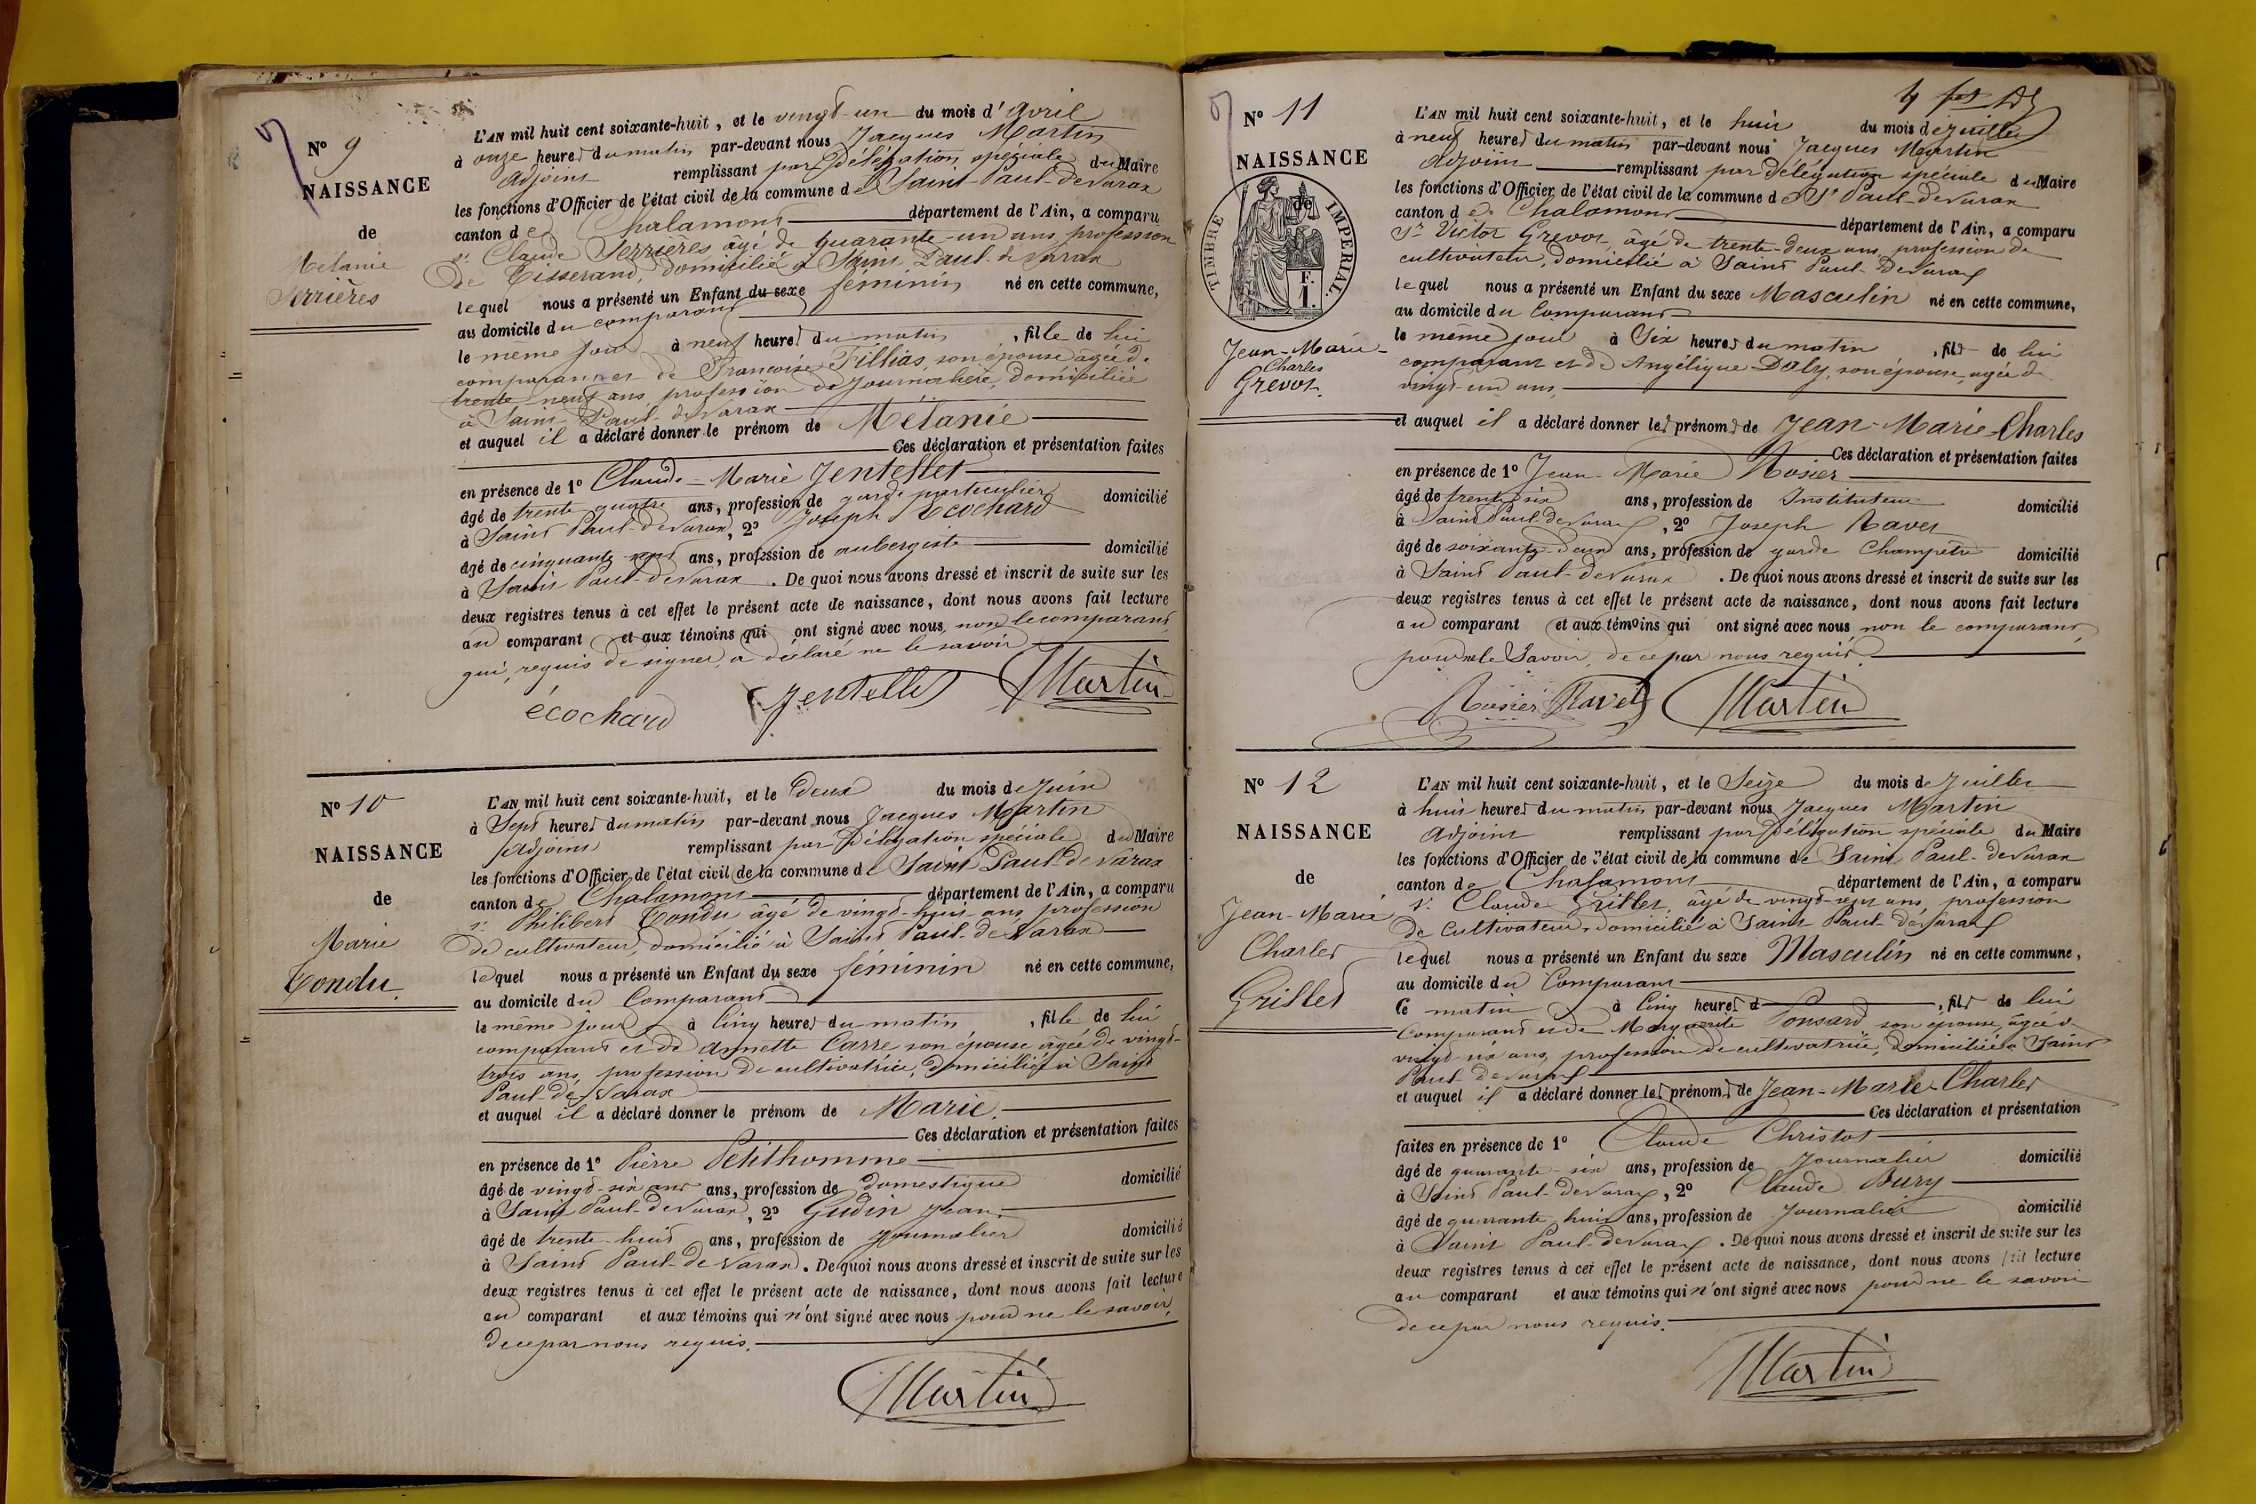 N° 9
NAISSANCE
de
Mélanie
Serrières
L'AN mil huit cent soixante-huit, et le vingt-un du mois d'Avril
à onze heures du matin par-devant nous Jacques Martin
Adjoint remplissant par Délégation spéciale du Maire
les fonctions d'Officier de l'état civil de la commune de Saint-Paul-de Varax
canton de Chalamont département de l'Ain, a comparu
sr. Claude Serrières âgé de quarante-un ans, profession
de Tisserand, domicilié à Saint Paul-de Varax
lequel nous a présenté un Enfant du sexe féminin né en cette commune,
au domicile du comparant
le même jour à neuf heures du matin, fille de lui
comparant et de Françoise Fillias, son épouse âgée de
trente-neuf ans, profession de Journalière, domiciliée
à Saint Paul-de Varax
et auquel il a déclaré donner le prénom de Mélanie
Ces déclaration et présentation faites
en présence de 1° Claude-Marie Jentellet
âgé de trente quatre ans, profession de garde particulier domicilié
à Saint Paul-de Varax, 2° Joseph Ecochard
âgé de cinquante sept ans, profession de aubergiste domicilié
à Saint Paul-de Varax. De quoi nous avons dressé et inscrit de suite sur les
deux registres tenus à cet effet le présent acte de naissance, dont nous avons fait lecture
au comparant et aux témoins qui ont signé avec nous, non le comparant
qui, requis de signer, a déclaré ne le savoir
écochard Jentellet Martin
N° 10
NAISSANCE
de
Marie
Condu
L'AN mil huit cent soixante-huit, et le Deux du mois de Juin
à Sept heures du matin par-devant nous Jacques Martin
Adjoint remplissant par Délégation spéciale du Maire
les fonctions d'Officier de l'état civil de la commune de Saint Paul-de Varax
canton de Chalamont département de l'Ain, a comparu
sr. Philibert Condu âgé de vingt-huit ans, profession
de cultivateur, domicilié à Saint Paul-de Varax
lequel nous a présenté un Enfant du sexe féminin né en cette commune,
au domicile du Comparant
le même jour à Cinq heures du matin, fille de lui
comparant et de Annette Carre son épouse âgée de vingt-
trois ans, profession de cultivatrice, domiciliée à Saint
Paul-de Varax
et auquel il a déclaré donner le prénom de Marie.
Ces déclaration et présentation faites
en présence de 1° Pierre Petithomme
âgé de vingt-six ans ans, profession de domestique domicilié
à Saint Paul-de Varax, 2° Gudin Jean
âgé de trente-huit ans, profession de journalier domicilié
à Saint Paul-de Varax. De quoi nous avons dressé et inscrit de suite sur les
deux registres tenus à cet effet le présent acte de naissance, dont nous avons fait lecture
au comparant et aux témoins qui n'ont signé avec nous pour ne le savoir,
de ce par nous requis.
Martin
N° 11
NAISSANCE
de
TIMBRE IMPERIAL.
F.
1.
Jean-Marie-
Charles
Grevot
L'AN mil huit cent soixante-huit, et le huit du mois de juillet
à neuf heures du matin par-devant nous Jacques Martin
Adjoint remplissant par Délégation spéciale du Maire
les fonctions d'Officier de l'état civil de la commune de St Paul-de Varax
canton de Chalamont département de l'Ain, a comparu
sr. Victor Grevot, âgé de trente-deux ans, profession de
cultivateur, domicilié à Saint Paul-de Varax
lequel nous a présenté un Enfant du sexe Masculin né en cette commune,
au domicile du Comparant
le même jour à Six heures du matin, fils de lui
comparant et de Angélique Daly, son épouse, âgée de
vingt-un ans,
et auquel il a déclaré donner les prénoms de Jean-Marie-Charles
Ces déclaration et présentation faites
en présence de 1° Jean-Marie Rosier
âgé de trente six ans, profession de Instituteur domicilié
à Saint Paul-de Varax, 2° Joseph Ravet
âgé de soixante-deux ans, profession de garde Champêtre domicilié
à Saint Paul-de Varax. De quoi nous avons dressé et inscrit de suite sur les
deux registres tenus à cet effet le présent acte de naissance, dont nous avons fait lecture
au comparant et aux témoins qui ont signé avec nous, non le comparant,
pour ne le Savoir, de ce par nous requis.
Rosier Ravet Martin
N° 12
NAISSANCE
de
Jean-Marie
Charles
Grillet
L'AN mil huit cent soixante-huit, et le Seize du mois de Juillet
à huit heures du matin par-devant nous Jacques Martin
Adjoint remplissant par Délégation spéciale du Maire
les fonctions d'Officier de l'état civil de la commune de Saint Paul-de Varax
canton de Chalamont département de l'Ain, a comparu
sr. Claude Grillet, âgé de vingt-sept ans, profession
de Cultivateur, domicilié à Saint Paul-de Varax
lequel nous a présenté un Enfant du sexe Masculin né en cette commune,
au domicile du Comparant
Ce matin à Cinq heures d, fils de lui
Comparant et de Marguerite Ponsard son épouse, âgée de
vingt-six ans, profession de cultivatrice, domiciliée à Saint
Paul-de Varax
et auquel il a déclaré donner les prénoms de Jean-Marie-Charles
Ces déclaration et présentation
faites en présence de 1° Claude Christot
âgé de quarante-six ans, profession de Journalier domicilié
à Saint Paul-de Varax, 2° Claude Bury
âgé de quarante huit ans, profession de Journalier domicilié
à Saint Paul-de Varax. De quoi nous avons dressé et inscrit de suite sur les
deux registres tenus à cet effet le présent acte de naissance, dont nous avons fait lecture
au comparant et aux témoins qui n'ont signé avec nous pour ne le savoir
de ce par nous requis.
Martin